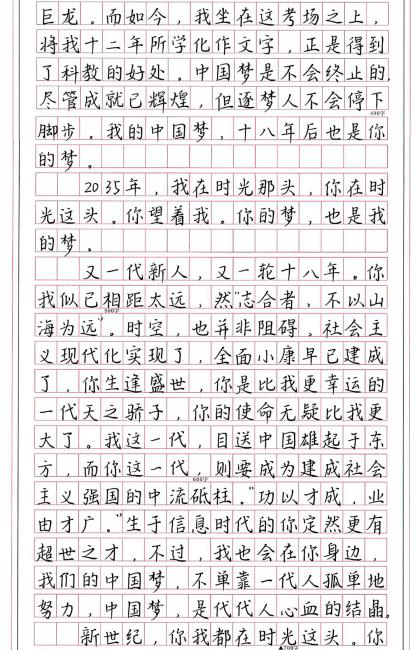 巨龙。而如今，我坐在这考场之上，
将我十二年所学化作文字，正是得到
了科教的好处。中国梦是不会终止的，
尽管成就已辉煌，但逐梦人不会停下
400字
脚步。我的中国梦，十八年后也是你
的梦。
2035年，我在时光那头，你在时
光这头。你望着我。你的梦，也是我
的梦。
又一代新人，又一轮十八年。你
我似已相距太远，然“志合者，不以山
500字
海为远”。时空，也并非阻碍，社会主
义现代化实现了，全面小康早已建成
了，你生逢盛世，你是比我更幸运的
一代天之骄子，你的使命无疑比我更
大了。我这一代，目送中国雄起于东
方，而你这一代，则要成为建成社会
600字
主义强国的中流砥柱。“功以才成，业
由才广。”生于信息时代的你定然更有
超世之才，不过，我也会在你身边，
我们的中国梦，不单靠一代人孤单地
努力，中国梦，是代代人心血的结晶。
新世纪，你我都在时光这头。你
▲700字